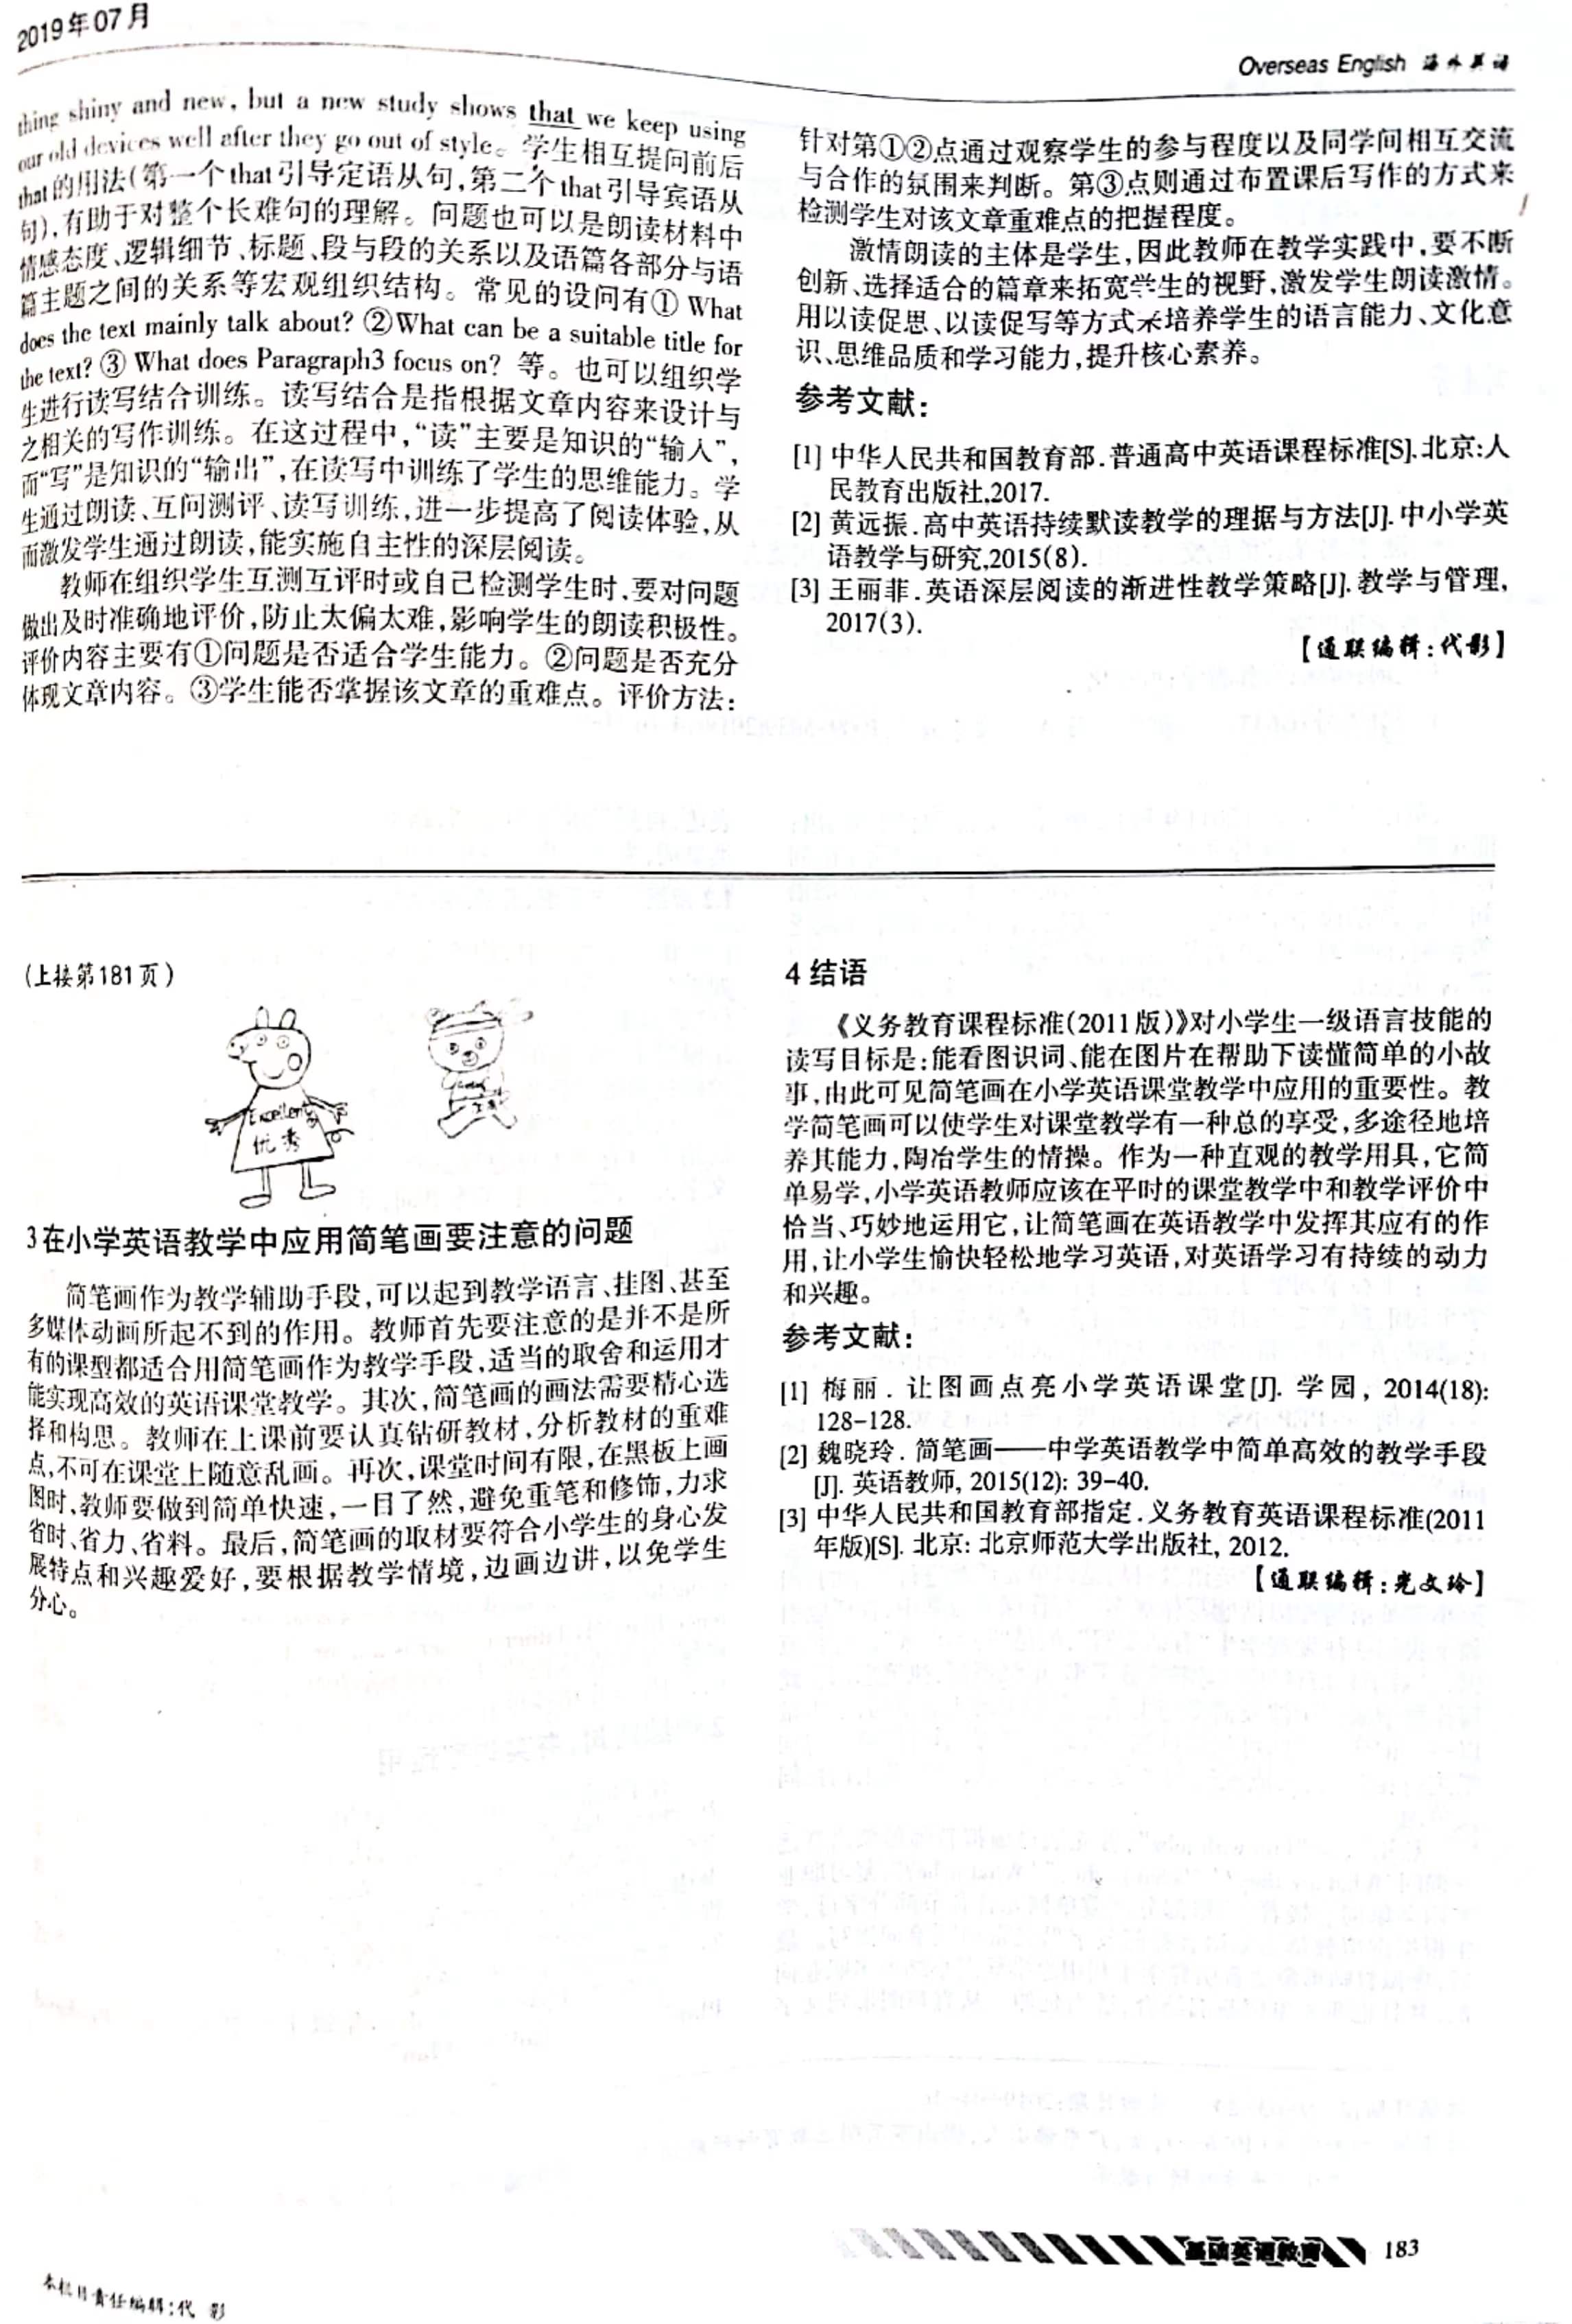 2019年07月
Overseas English 海外英语
thing shiny and new, but a new study shows that we keep using
our old devices well after they go out of style。学生相互提问前后
that的用法(第一个that引导定语从句,第二个that引导宾语从
句),有助于对整个长难句的理解。问题也可以是朗读材料中
情感态度、逻辑细节、标题、段与段的关系以及语篇各部分与语
篇主题之间的关系等宏观组织结构。常见的设问有① What
does the text mainly talk about? ②What can be a suitable title for
the text? ③ What does Paragraph3 focus on? 等。也可以组织学
生进行读写结合训练。读写结合是指根据文章内容来设计与
之相关的写作训练。在这过程中,“读”主要是知识的“输入”,
而“写”是知识的“输出”,在读写中训练了学生的思维能力。学
生通过朗读、互问测评、读写训练,进一步提高了阅读体验,从
而激发学生通过朗读,能实施自主性的深层阅读。
教师在组织学生互测互评时或自己检测学生时,要对问题
做出及时准确地评价,防止太偏太难,影响学生的朗读积极性。
评价内容主要有①问题是否适合学生能力。②问题是否充分
体现文章内容。③学生能否掌握该文章的重难点。评价方法:
针对第①②点通过观察学生的参与程度以及同学间相互交流
与合作的氛围来判断。第③点则通过布置课后写作的方式来
检测学生对该文章重难点的把握程度。
激情朗读的主体是学生,因此教师在教学实践中,要不断
创新、选择适合的篇章来拓宽学生的视野,激发学生朗读激情。
用以读促思、以读促写等方式来培养学生的语言能力、文化意
识、思维品质和学习能力,提升核心素养。
参考文献:
[1] 中华人民共和国教育部.普通高中英语课程标准[S].北京:人
民教育出版社,2017.
[2] 黄远振.高中英语持续默读教学的理据与方法[J].中小学英
语教学与研究,2015(8).
[3] 王丽菲.英语深层阅读的渐进性教学策略[J].教学与管理,
2017(3).
【通联编辑:代影】
(上接第181页)
Excellent
优秀
3在小学英语教学中应用简笔画要注意的问题
简笔画作为教学辅助手段,可以起到教学语言、挂图、甚至
多媒体动画所起不到的作用。教师首先要注意的是并不是所
有的课型都适合用简笔画作为教学手段,适当的取舍和运用才
能实现高效的英语课堂教学。其次,简笔画的画法需要精心选
择和构思。教师在上课前要认真钻研教材,分析教材的重难
点,不可在课堂上随意乱画。再次,课堂时间有限,在黑板上画
图时,教师要做到简单快速,一目了然,避免重笔和修饰,力求
省时、省力、省料。最后,简笔画的取材要符合小学生的身心发
展特点和兴趣爱好,要根据教学情境,边画边讲,以免学生
分心。
4 结语
《义务教育课程标准(2011版)》对小学生一级语言技能的
读写目标是:能看图识词、能在图片在帮助下读懂简单的小故
事,由此可见简笔画在小学英语课堂教学中应用的重要性。教
学简笔画可以使学生对课堂教学有一种总的享受,多途径地培
养其能力,陶冶学生的情操。作为一种直观的教学用具,它简
单易学,小学英语教师应该在平时的课堂教学中和教学评价中
恰当、巧妙地运用它,让简笔画在英语教学中发挥其应有的作
用,让小学生愉快轻松地学习英语,对英语学习有持续的动力
和兴趣。
参考文献:
[1] 梅丽. 让图画点亮小学英语课堂[J]. 学园, 2014(18):
128-128.
[2] 魏晓玲. 简笔画——中学英语教学中简单高效的教学手段
[J]. 英语教师, 2015(12): 39-40.
[3] 中华人民共和国教育部指定.义务教育英语课程标准(2011
年版)[S]. 北京: 北京师范大学出版社, 2012.
【通联编辑:光文玲】
基础英语教育 183
本栏目责任编辑:代 影